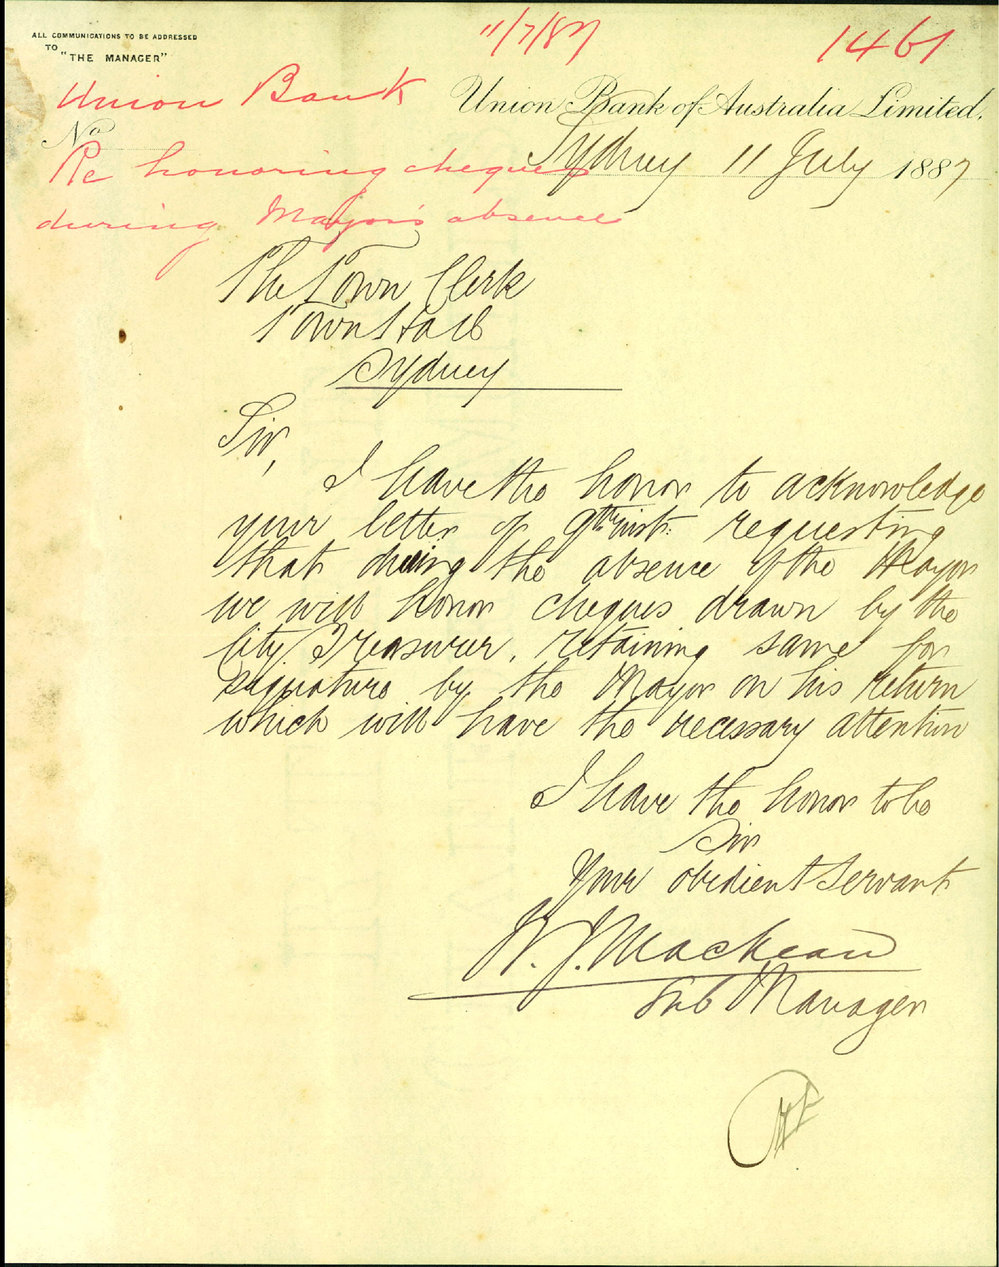 ALL COMMUNICATIONS TO BE ADDRESSED
TO
"THE MANAGER"
11/7/87
1461
Union Bank
Union Bank of Australia Limited.
No
Sydney 11 July 1887
Re honoring cheques
during Mayor's absence
The Town Clerk
Town Hall
Sydney
Sir,
I have the honor to acknowledge
your letter of 9th inst. requesting
that during the absence of the Mayor
we will honor cheques drawn by the
City Treasurer, retaining same for
signature by the Mayor on his return
which will have the necessary attention
I have the honor to be
Sir
Your obedient Servant
W. J. Mackean
Sub Manager